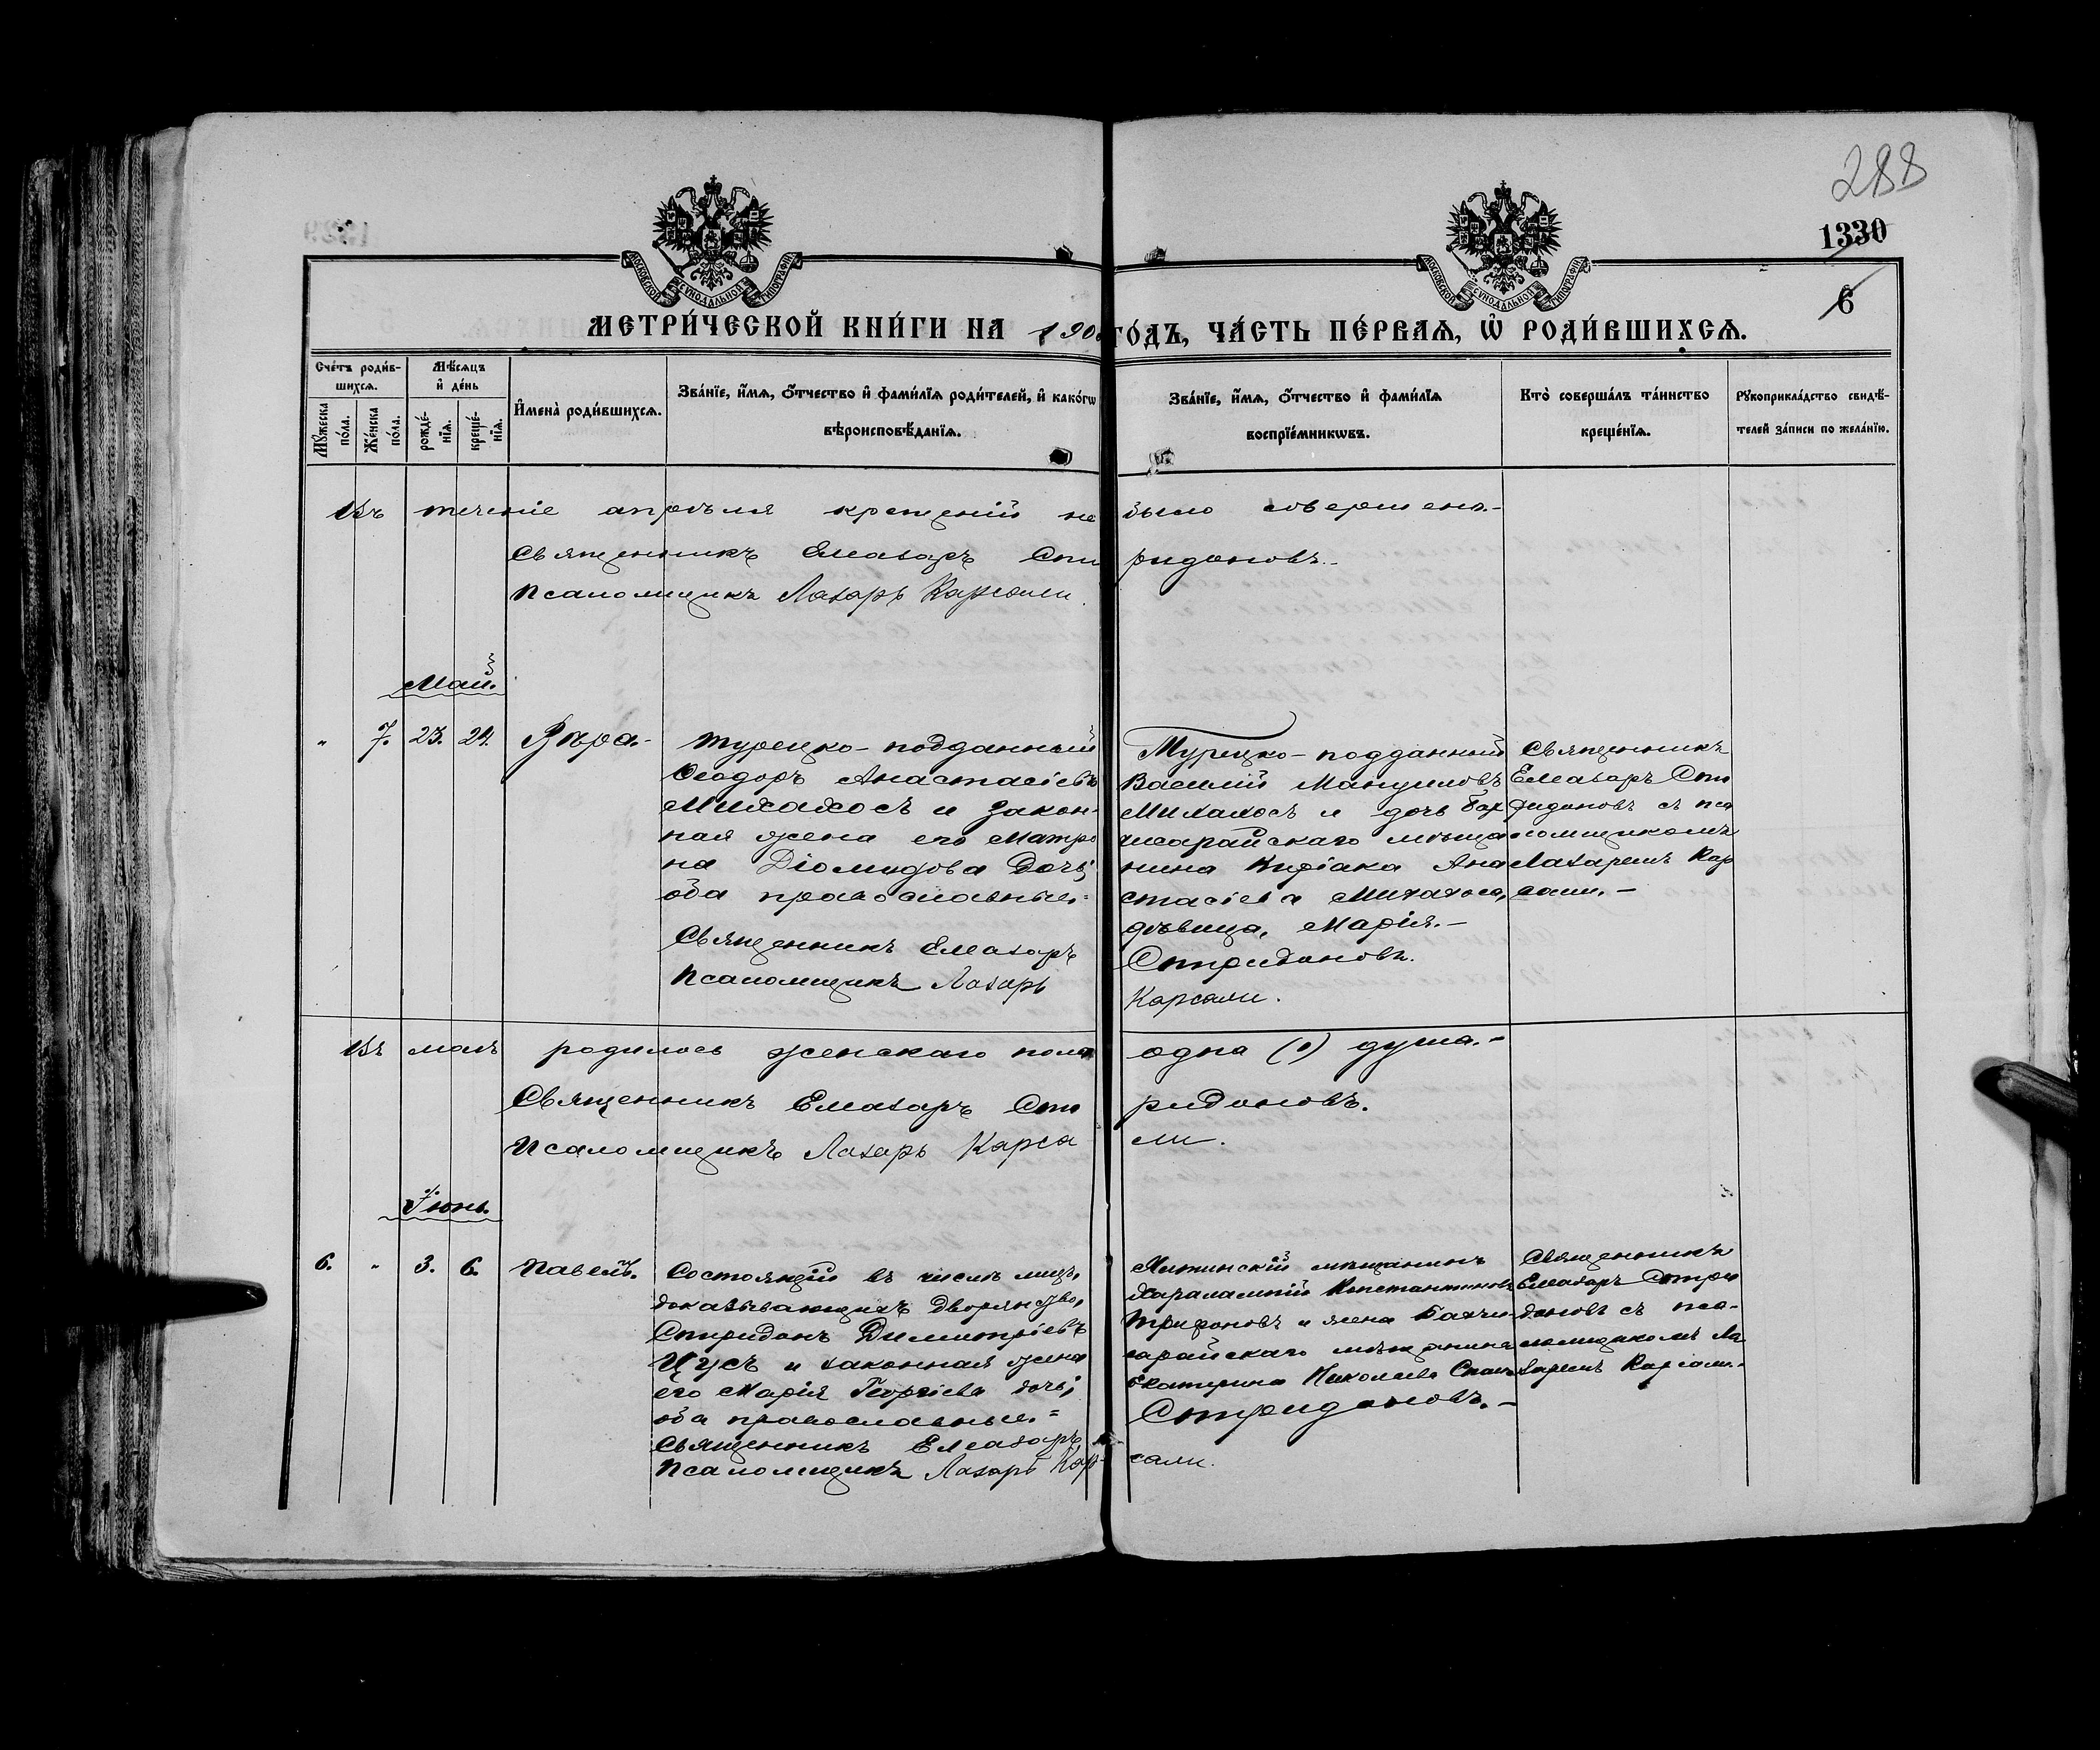 288
1330
6
МОСКОВСКОЙ СУНОДАЛЬНОЙ ТИПОГРАФІИ
МОСКОВСКОЙ СУНОДАЛЬНОЙ ТИПОГРАФІИ
МЕТРИ́ЧЕСКОЙ КНИ́ГИ НА 190 ГО́ДЪ, ЧА́СТЬ ПЕ́РВАѦ, Ѡ҆ РОДИ́ВШИХСѦ.
Сче́тъ роди́в-
шихсѧ.
Мꙋ́жеска
по́ла.
Же́нска
по́ла.
Мѣ́сѧцъ
и҆ де́нь
рожде́-
нїѧ.
креще́-
нїѧ.
И҆мена̀ роди́вшихсѧ.
Зва́нїе, и҆́мѧ, ѻ҆́тчество и҆ фами́лїѧ роди́телей, и҆ како́гѡ
вѣроисповѣ́данїѧ.
Зва́нїе, и҆́мѧ, ѻ҆́тчество и҆ фами́лїѧ
воспрїе́мникѡвъ.
Кто̀ соверша́лъ та́инство
креще́нїѧ.
Рꙋкоприкла́дство свидѣ́-
телей за́писи по жела́нїю.
Въ теченіе апрѣля крещеній не было совершено.-
Священникъ Елеазаръ Спи ридоновъ.-
Псаломщикъ Лазарь Карсали.
Май.
" 7. 23. 24.
Вѣра.-
Турецко-подданный
Ѳеодоръ Анастасіевъ
Михалосъ и закон-
ная жена его Матро
на Діомидова дочь;
оба православные.=
Священникъ Елеазаръ
Псаломщикъ Лазарь
Турецко-подданный
Василій Мануиловъ
Михалосъ и дочь Бах
чисарайскаго мѣща
нина Киріака Ана
стасіева Михалоса,
дѣвица, Марія.-
Спиридоновъ.
Карсали.
Священникъ
Елеазаръ Спи
ридоновъ съ пса
ломщикомъ
Лазаремъ Кар
сали.-
Въ маѣ родилось женскаго пола одна (1) душа.-
Священникъ Елеазаръ Спи ридоновъ.
Псаломщикъ Лазарь Карса ли.
Іюнь.
6. " 3. 6.
Павелъ.
Состоящій въ числѣ лицъ,
доказывающихъ дворянство,
Спиридонъ Димитріевъ
и законная жена
его Марія Георгіева дочь;
оба православные.=
Священникъ Елеазаръ
Псаломщикъ Лазарь Кар-
мѣщанинъ
Харалампій Константиновъ
Трифоновъ и жена Бахчи-
сарайскаго мѣщанина
Екатерина Николаева
Спиридоновъ.-
сали.
Священникъ
Елеазаръ Спири
доновъ съ пса-
ломщикомъ Ла
заремъ Карсали.-